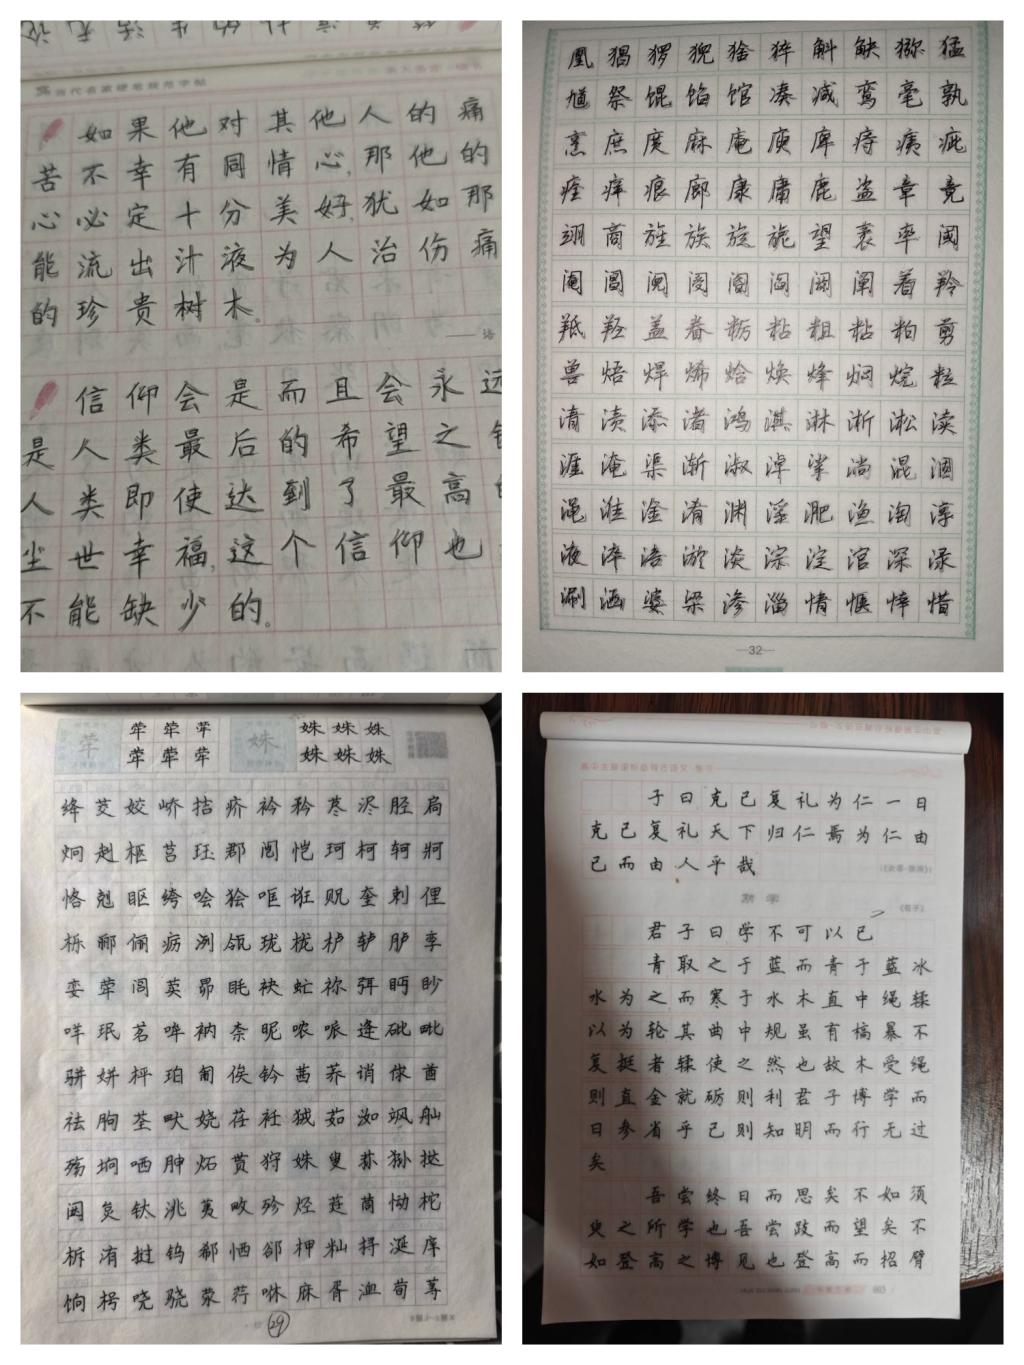 如果他对其他人的痛
苦不幸有同情心,那他的
心必定十分美好,犹如那
能流出汁液为人治伤痛
的珍贵树木。
信仰会是而且会永远
是人类最后的希望之
人类即使达到了最高
尘世幸福,这个信仰也
不能缺少的。
凰猖猡猊猞猝斛觖猕猛
馗祭馄馅馆凑减鸾毫孰
烹庶度麻庵庾庳痔痍疵
痊痒痕廊康庸鹿盗章竟
翊商旌族旋旎望袤率阈
阉阊阋阌阍阎阏阐着羚
羝羟盖眷粝粘粗粘粕剪
兽焐焊烯焓焕烽焖烷粒
清渍添渚鸿淇淋淅淞渎
涯淹渠渐淑淖挲淌混涸
渑淮淦淆渊淫淝渔淘淳
液淬涪淤淡淙淀涫深渌
涮涵婆梁渗淄情惬悻惜
32
荦 荦荦荦 姝 姝姝姝
荦荦荦 姝姝姝
绛茭姣峤拮疥衿矜荩浕胫扃
炯剋柩莒珏郡闾恺珂柯轲牁
恪剋眍绔哙狯哐诳贶奎剌俚
栎郦俪疬洌瓴珑栊栌轳胪孪
娈荦闾荚昴眊袂虻祢弭眄眇
咩珉茗哞衲柰昵哝哌逄砒毗
骈姘枰珀匍俟钤茜荞诮俅酋
祛朐荃吠娆荏衽狨茹洳飒舢
殇垧哂胂炻贳狩姝叟荪狲挞
闼炱钛洮荑畋殄烃莛茼恸柁
柝洧挝钨郗恓郤柙籼挦涎庠
饷枵哓骁荥荇咻庥胥洫荀荨
29
子曰克己复礼为仁一日
克己复礼天下归仁焉为仁由
己而由人乎哉
《论语·颜渊》
劝学
《荀子》
君子曰学不可以已
青取之于蓝而青于蓝冰
水为之而寒于水木直中绳𫐓
以为轮其曲中规虽有槁暴不
复挺者𫐓使之然也故木受绳
则直金就砺则利君子博学而
日参省乎己则知明而行无过
矣
吾尝终日而思矣不如须
臾之所学也吾尝跂而望矣不
如登高之博见也登高而招臂